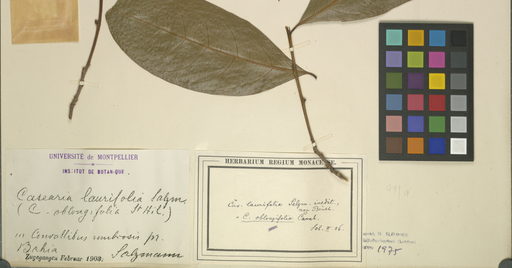 UNIVERSITÉ de MONTPELLIER
INSTITUT DE BOTANIQUE
Casearia laurifolia Salzm.
( C. oblongifolia St Hil.)
in Convallibus umbrosis pr.
Bahia Salzmann
Zugegangen Februar 1903.
HERBARIUM REGIUM MONACENSE
Cas. laurifolia Salzm. inedit.,
= C. oblongifolia Camb.
1975